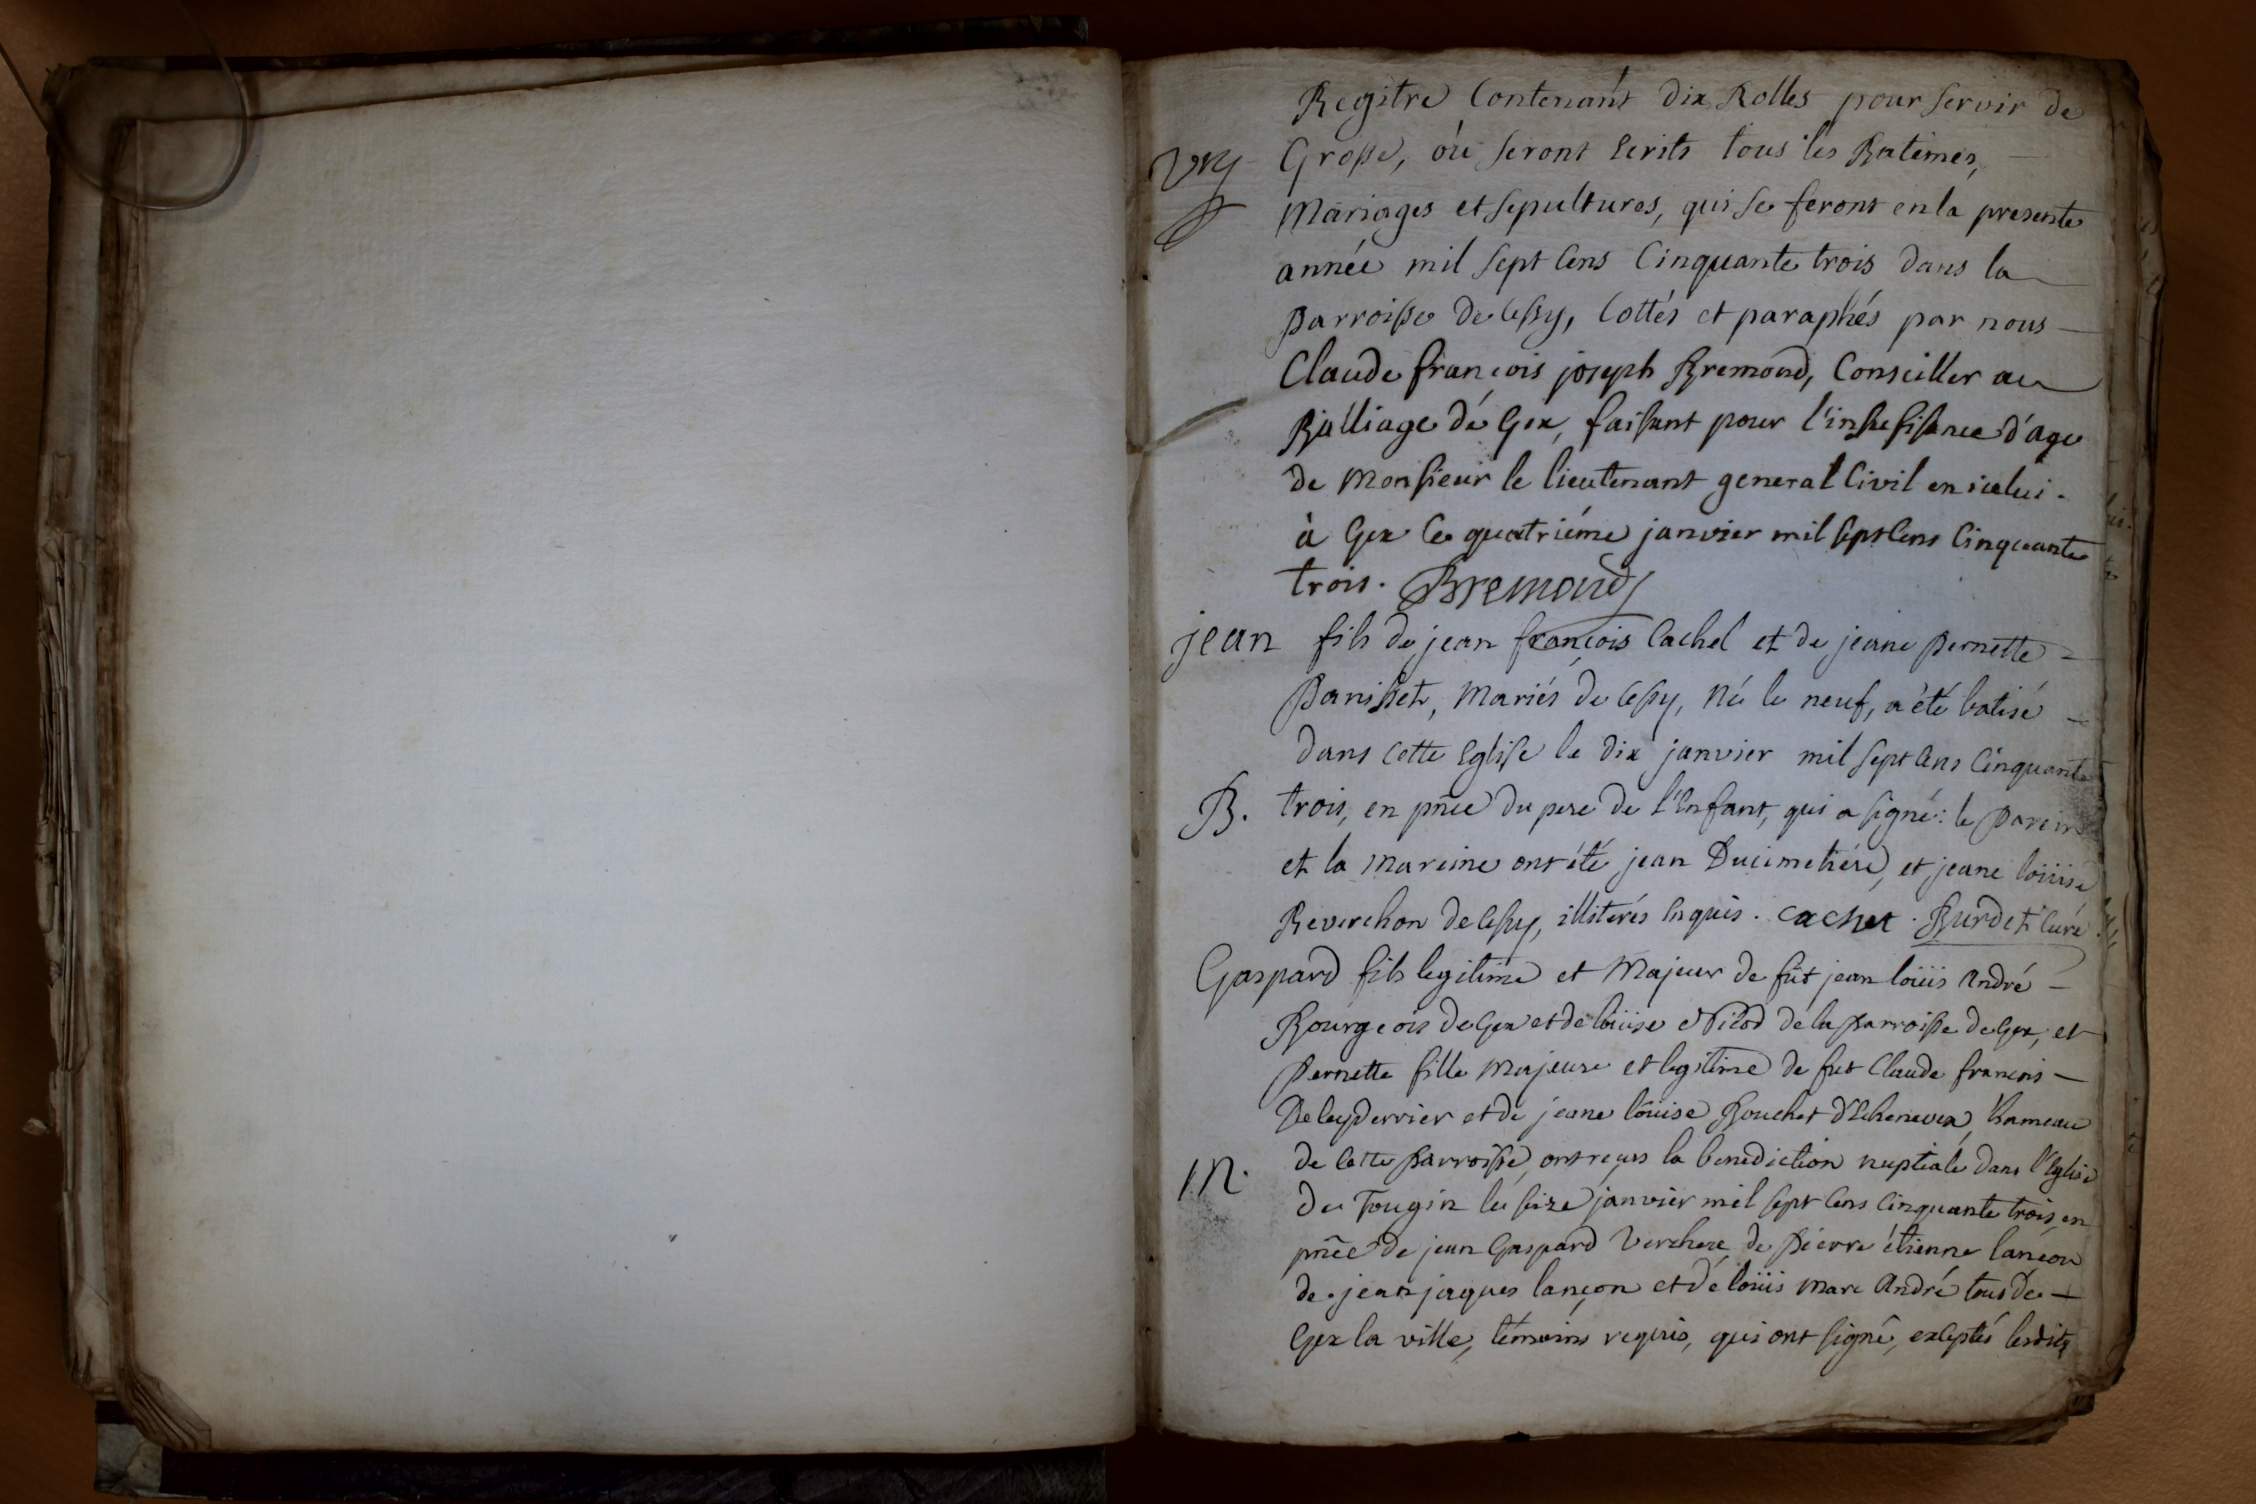 Regitre Contenant dix Rolles pour servir de
Grosse, où seront Ecrits tous les Batêmes,
Mariages et sepultures, qui se feront en la presente
année mil sept Cens Cinquante trois dans la
parroisse de Cessy, Cottés et paraphés par nous
Claude françois joseph Bremond, Conseiller au
Bailliage de Gex, faisant pour l'insufisance d'age
de Monsieur le lieutenant general Civil en icelui.
à Gex le quatriéme janvier mil sept Cens Cinquante
trois. Bremond
jean fils de jean françois Cachet et de jeane Pernette
Panisset, Mariés de Cessy, Né le neuf, a été batisé
dans Cette Eglise le dix janvier mil sept Cens Cinquante
B. trois, en pñce du pere de l'Enfant, qui a signé: le parein
et la mareine ont été jean Ducimetiére, et jeane loüise
Reverchon de Cessy, illiterés Enquis. cachet. Burdet Curé
Gaspard fils legitime et Majeur de fût jean loüis André
Bourgeois de Gex et de loüise Nicod de la parroisse de Gex, et
Pernette fille Majeure et legitime de fut Claude francois
Deleyderrier et de jeane loüise Bouchet d'Echenevex, hameau
M. de Cette parroisse, ont reçus la benediction nuptiale dans l'Eglise
de Tougin le seize janvier mil sept Cens Cinquante trois, en
pñce de jean Gaspard Verchere, de Pierre étienne lançon
de jean jaques lançon et de loüis Marc André tous de
Gex la ville, témoins requis, qui ont signé, exceptés lesdits